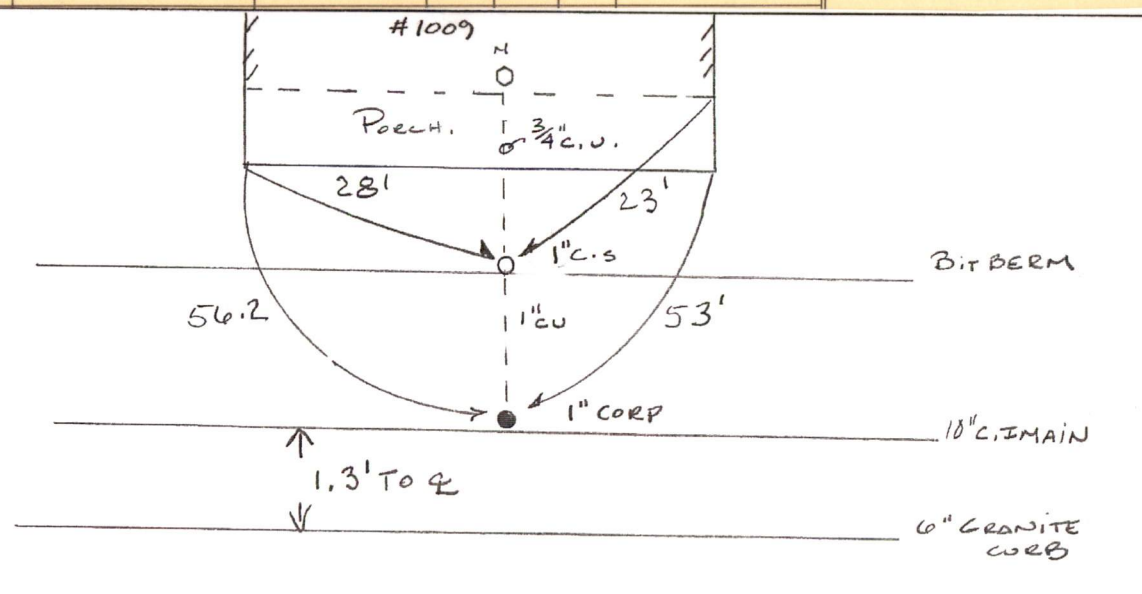 #1009
M
PORCH.
3/4" C.U.
28'
23'
1" C.S
BIT BERM
56.2
1" CU
53'
1" CORP
10" C.I MAIN
1.3' TO ℄
6" GRANITE
CURB